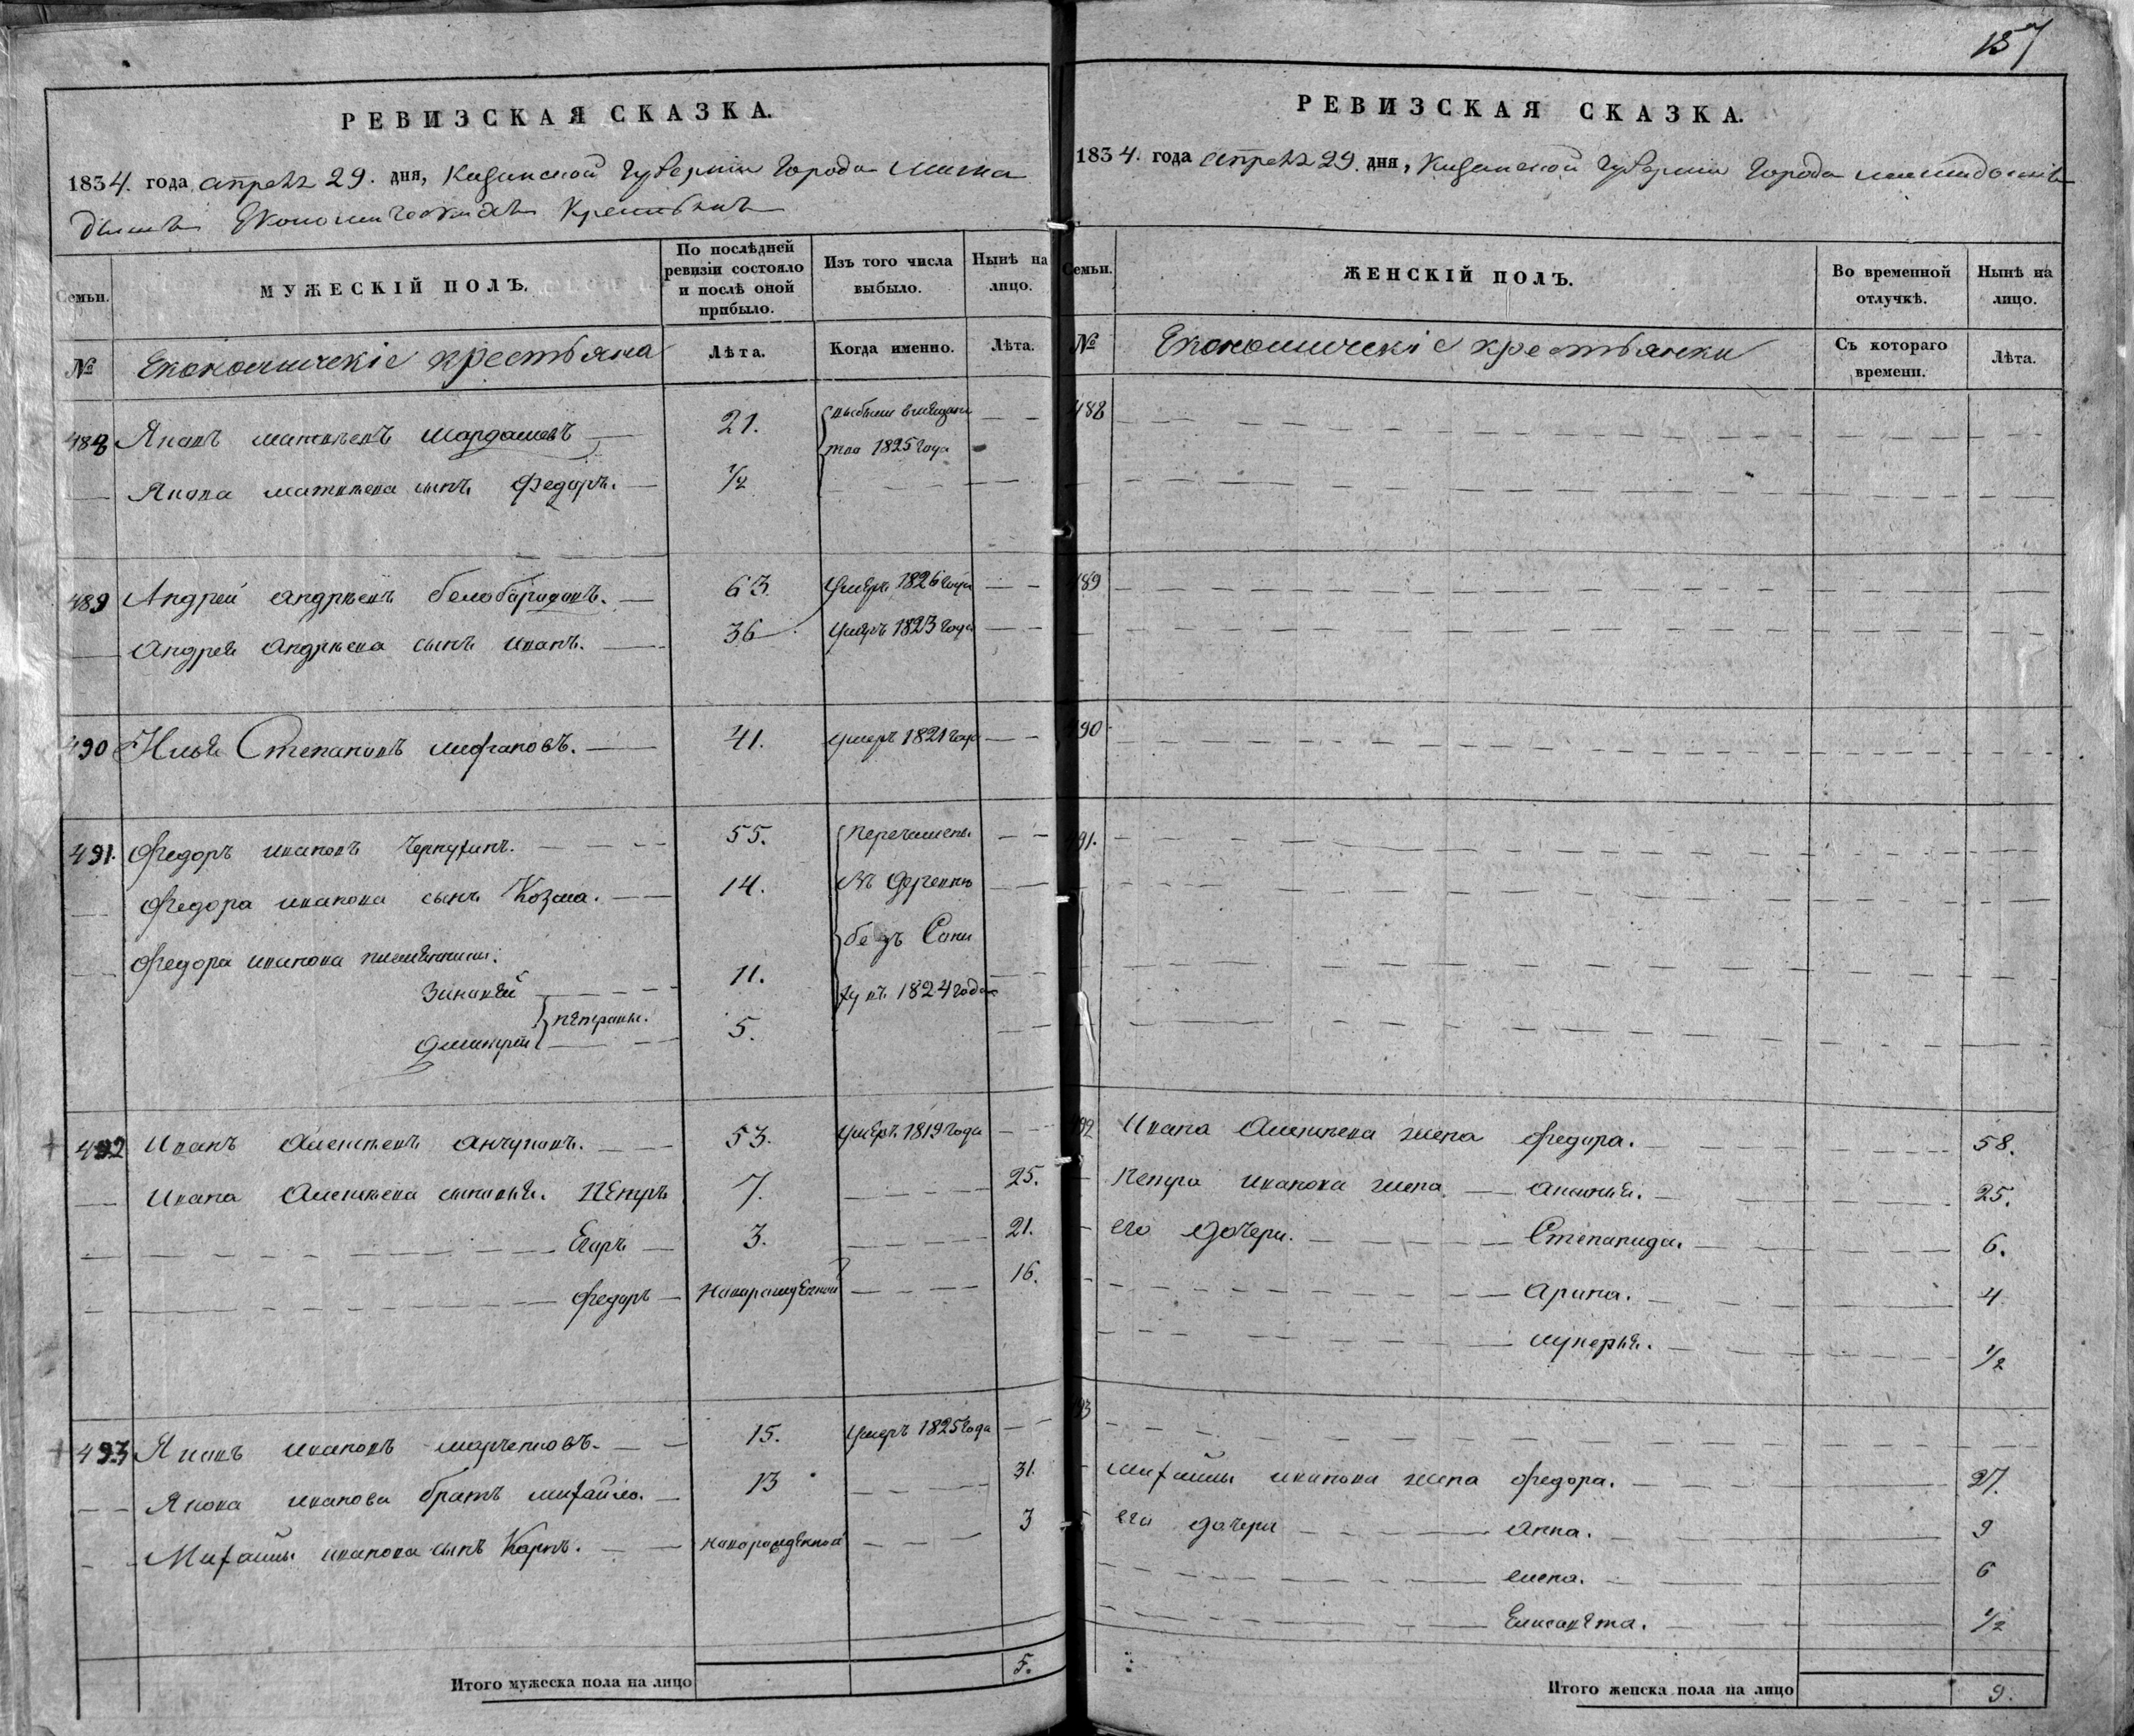 157
РЕВИЗСКАЯ СКАЗКА.
1834. года апреля 29. дня, Казанской Губернии Города
Економическихъ Крестьянъ
Семьи.
МУЖЕСКІЙ ПОЛЪ.
По послѣдней ревизіи состояло и послѣ оной прибыло.
Изъ того числа выбыло.
Нынѣ на лицо.
№
Економическіе крестьяна
Лѣта.
Когда именно.
Лѣта.
488 Яковъ Матвѣевъ Мардашевъ 21.
1825 года
Якова Матвѣева сынъ Федоръ. 1/2
489 Андрей Андрѣевъ 63. умеръ 1826 года
Андрея Андрѣева сынъ Иванъ. 36 умеръ 1823 года
490 Илья Степановъ 41. умеръ 1821 года
491. Федоръ Ивановъ 55. Перечислены
Федора Иванова сынъ Козма. 14. въ деревню
Федора Иванова племянники:
Зиновей 11. 1824 года
Петровы.
Дмитрей 5.
492 Иванъ Алексѣевъ Анчуковъ. 53. умеръ 1819 года
Ивана Алексѣева сыновья. Петръ 7. 25.
Егоръ 3. 21.
Федоръ новорожденной 16.
493 Яковъ Ивановъ 15. умеръ 1825 года
Якова Иванова братъ Михайло. 13 31.
Михайлы Иванова сынъ Карпъ. новорожденной 3
Итого мужеска пола на лицо 5.
РЕВИЗСКАЯ СКАЗКА.
1834. года апреля 29. дня, Казанской Губернии Города
Семьи.
ЖЕНСКІЙ ПОЛЪ.
Во временной отлучкѣ.
Нынѣ на лицо.
№
Економическіе крестьянки
Съ котораго времени.
Лѣта.
488
489
490
491.
492 Ивана Алексѣева жена Федора. 58.
Петра Иванова жена 25.
его дочери. Степанида. 6.
Арина. 4
Лукерья. 1/2
493
Михайлы Иванова жена Федора. 27.
его дочери Анна. 9
6
Елисавета. 1/2
Итого женска пола на лицо 9.